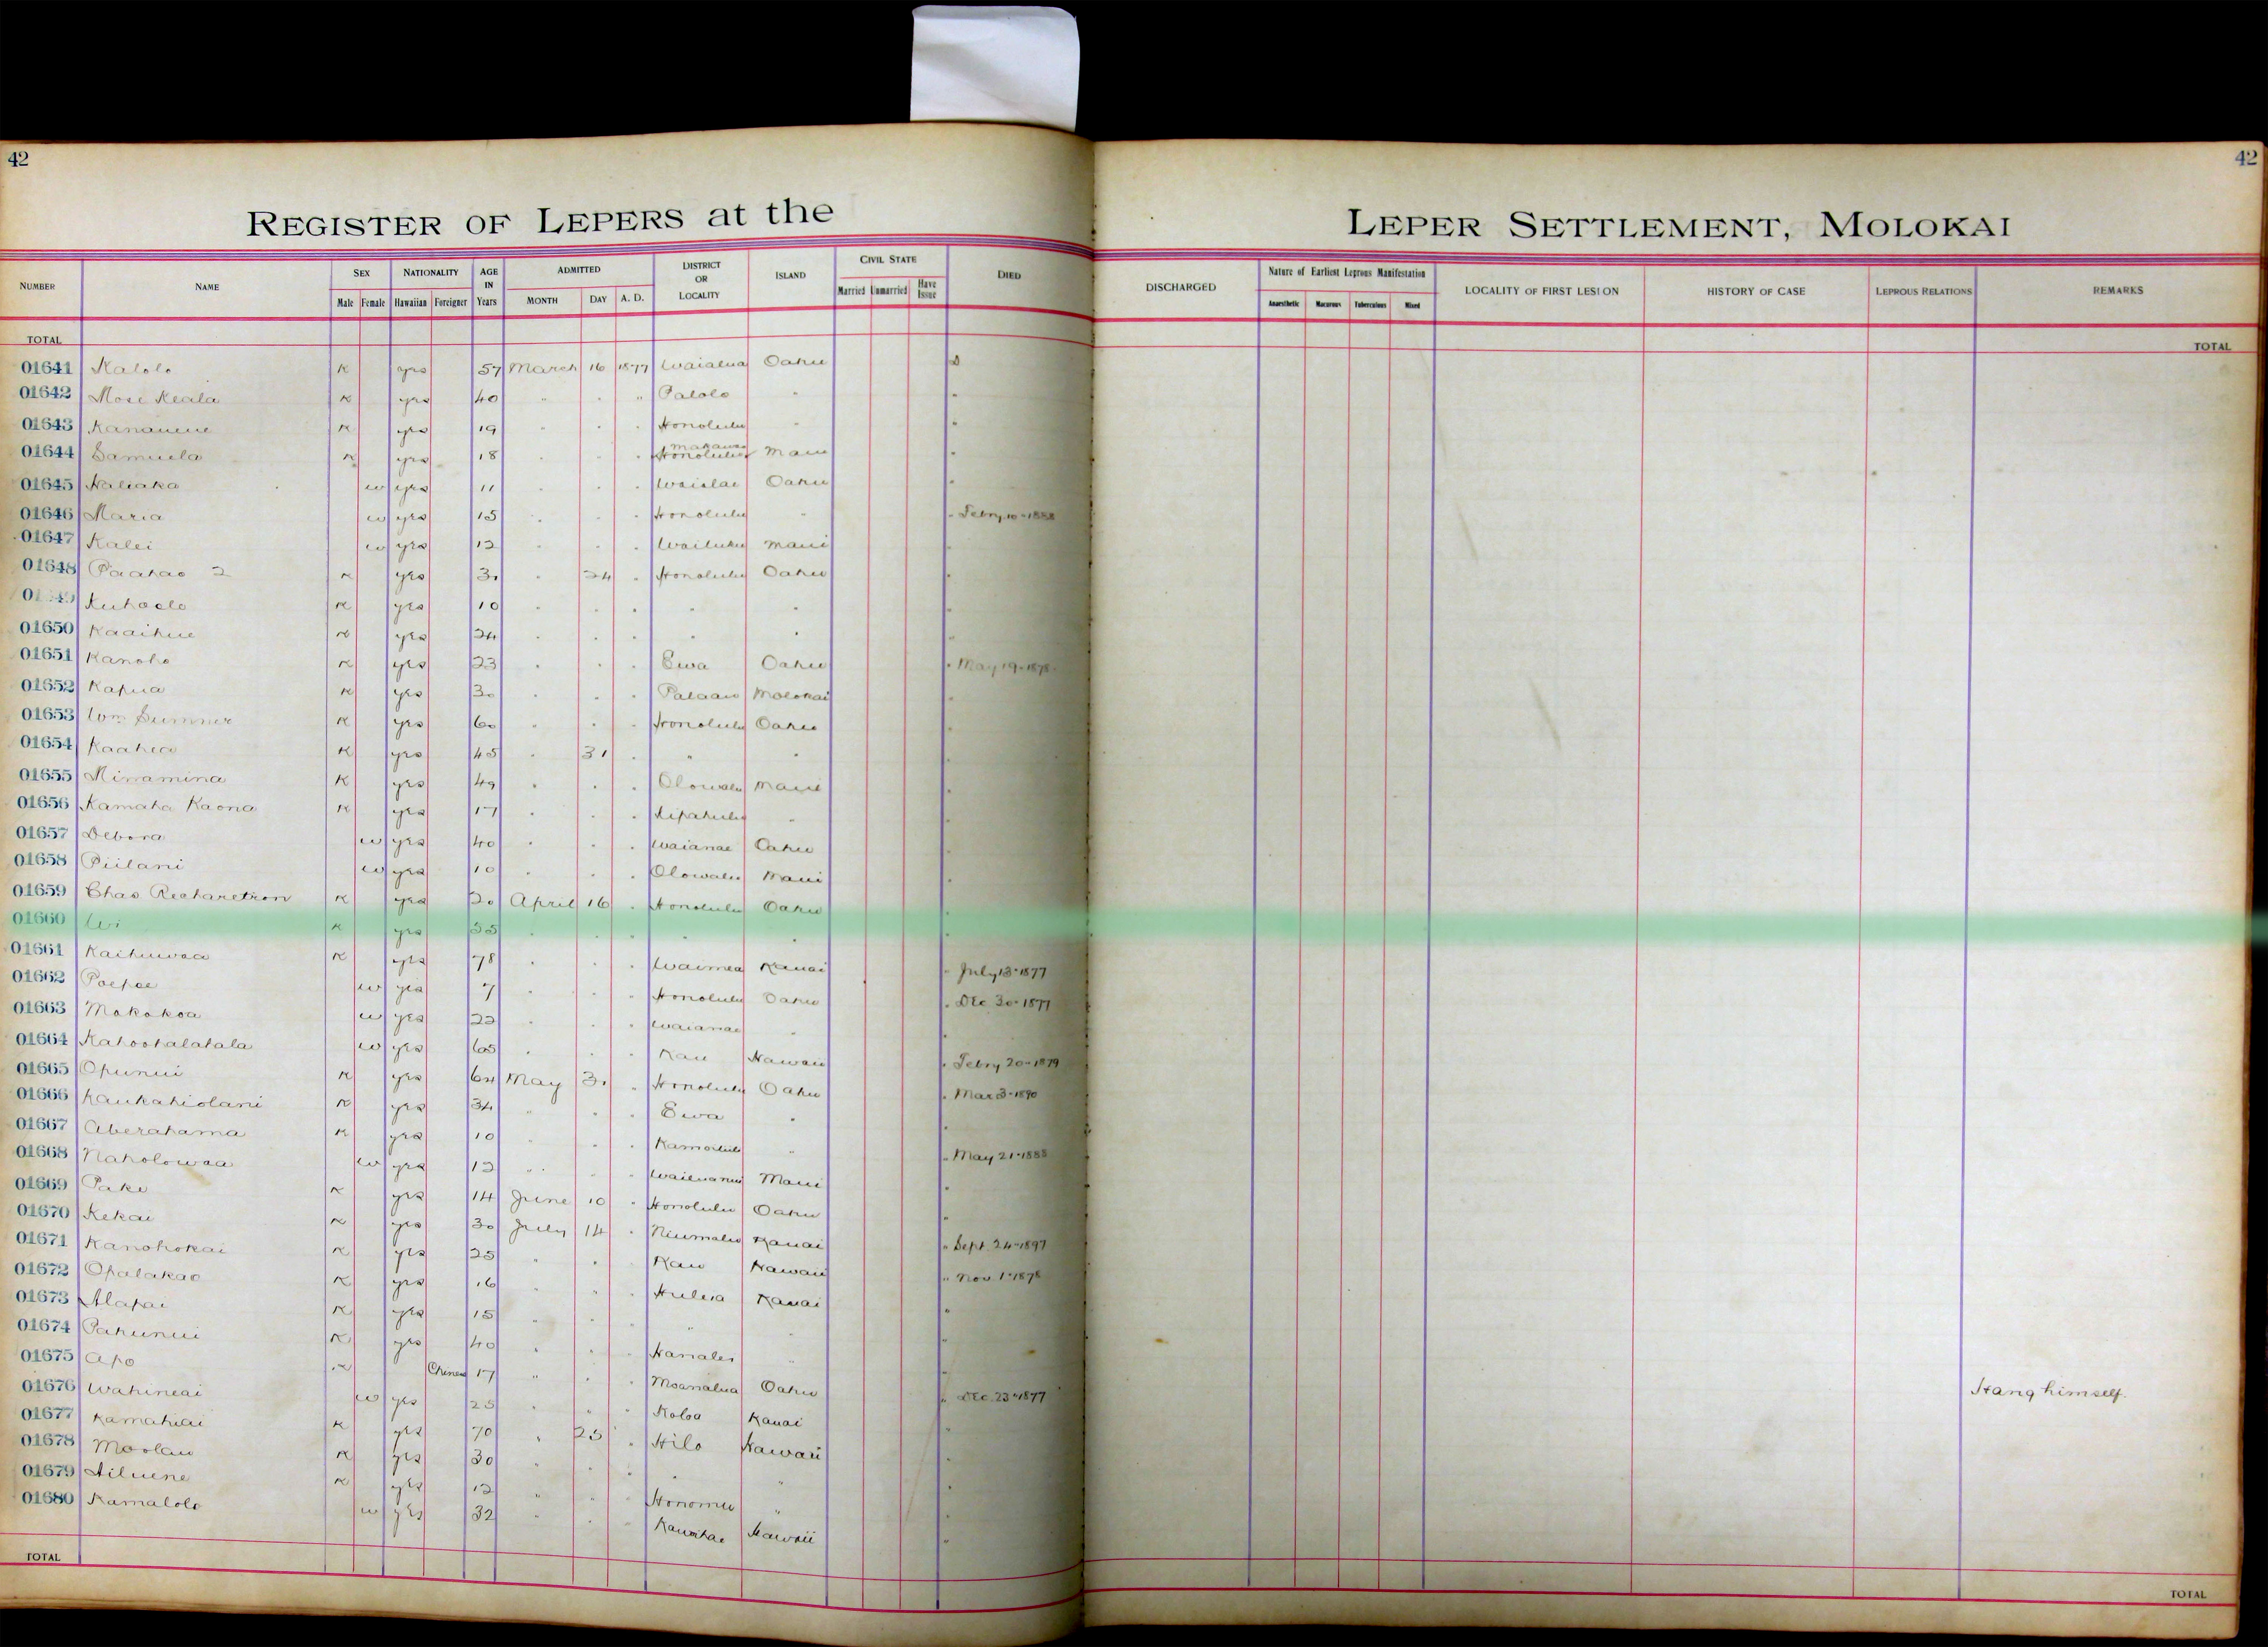 42
42
REGISTER OF LEPERS at the LEPER SETTLEMENT, MOLOKAI
NUMBER NAME SEX Male Female NATIONALITY Hawaiian Foreigner AGE IN Years ADMITTED MONTH DAY A. D. DISTRICT OR LOCALITY ISLAND CIVIL STATE Married Unmarried Have Issue DIED DISCHARGED Nature of Earliest Leprous Manifestation Anaesthetic Macurous Tuberculous Mixed LOCALITY OF FIRST LESION HISTORY OF CASE LEPROUS RELATIONS REMARKS
TOTAL TOTAL
01641 Kalolo K yes 57 March 16 1877 Waialua Oahu D
01642 Mose Keala K yes 40 " " " Palolo " "
01643 Kananeue K yes 19 " " " Honolulu " "
01644 Samuela K yes 18 " " " Makawao Honolulu Maui "
01645 Naliaka w yes 11 " " " Waialae Oahu "
01646 Maria w yes 15 " " " Honolulu " " Febry 10-1888
01647 Kalei w yes 12 " " " Wailuku Maui "
01648 Paahao 2 K yes 30 " 24 " Honolulu Oahu "
Kuhaelo K yes 10 " " " " " "
01650 Kaaihue K yes 24 " " " " " "
01651 Kanoho K yes 23 " " " Ewa Oahu " May 19-1878
01652 Kapua K yes 30 " " " Palaau Molokai "
01653 Wm Sumner K yes 60 " " " Honolulu Oahu "
01654 Kaahea K yes 45 " 31 " " " "
01655 Minamina K yes 49 " " " Olowalu Maui "
01656 Kamaha Kaona K yes 17 " " " Kipahulu " "
01657 Debora w yes 40 " " " Waianae Oahu "
01658 Piilani w yes 10 " " " Olowalu Maui "
01659 Chas Richardson K yes 20 April 16 " Honolulu Oahu "
01660 Wi K yes 55 " " " " " "
01661 Kaihuwaa K yes 78 " " " Waimea Kauai " July 13-1877
01662 Poepoe w yes 7 " " " Honolulu Oahu " Dec 30-1877
01663 Makakoa w yes 22 " " " Waianae " "
01664 Kahoohalahala w yes 65 " " " Kau Hawaii " Febry 20-1879
01665 Opunui K yes 64 May 31 " Honolulu Oahu " Mar 3-1890
01666 Kaukahiolani K yes 34 " " " Ewa " "
01667 Aberahama K yes 10 " " " Kamoiliili " " May 21-1888
01668 Naholowaa w yes 12 " " " Wailuanui Maui "
01669 Pake K yes 14 June 10 " Honolulu Oahu "
01670 Kekai K yes 30 July 14 " Niumalu Kauai " Sept. 24-1897
01671 Kanohokai K yes 25 " " " Kau Hawaii " Nov 1-1878
01672 Opalakao K yes 16 " " " Huleia Kauai "
01673 Alapai K yes 15 " " " " " "
01674 Pahunui K yes 40 " " " Hanalei " "
01675 Apo K Chinese 17 " " " Moanalua Oahu " Dec. 23-1877 Hang himself.
01676 Wahineai w yes 25 " " " Koloa Kauai "
01677 Kamahiai K yes 70 " 25 " Hilo Hawaii "
01678 Moolau K yes 30 " " " " " "
01679 Ailuene K yes 12 " " " Honomu " "
01680 Kamalolo w yes 32 " " " Kawaihae Hawaii "
TOTAL TOTAL